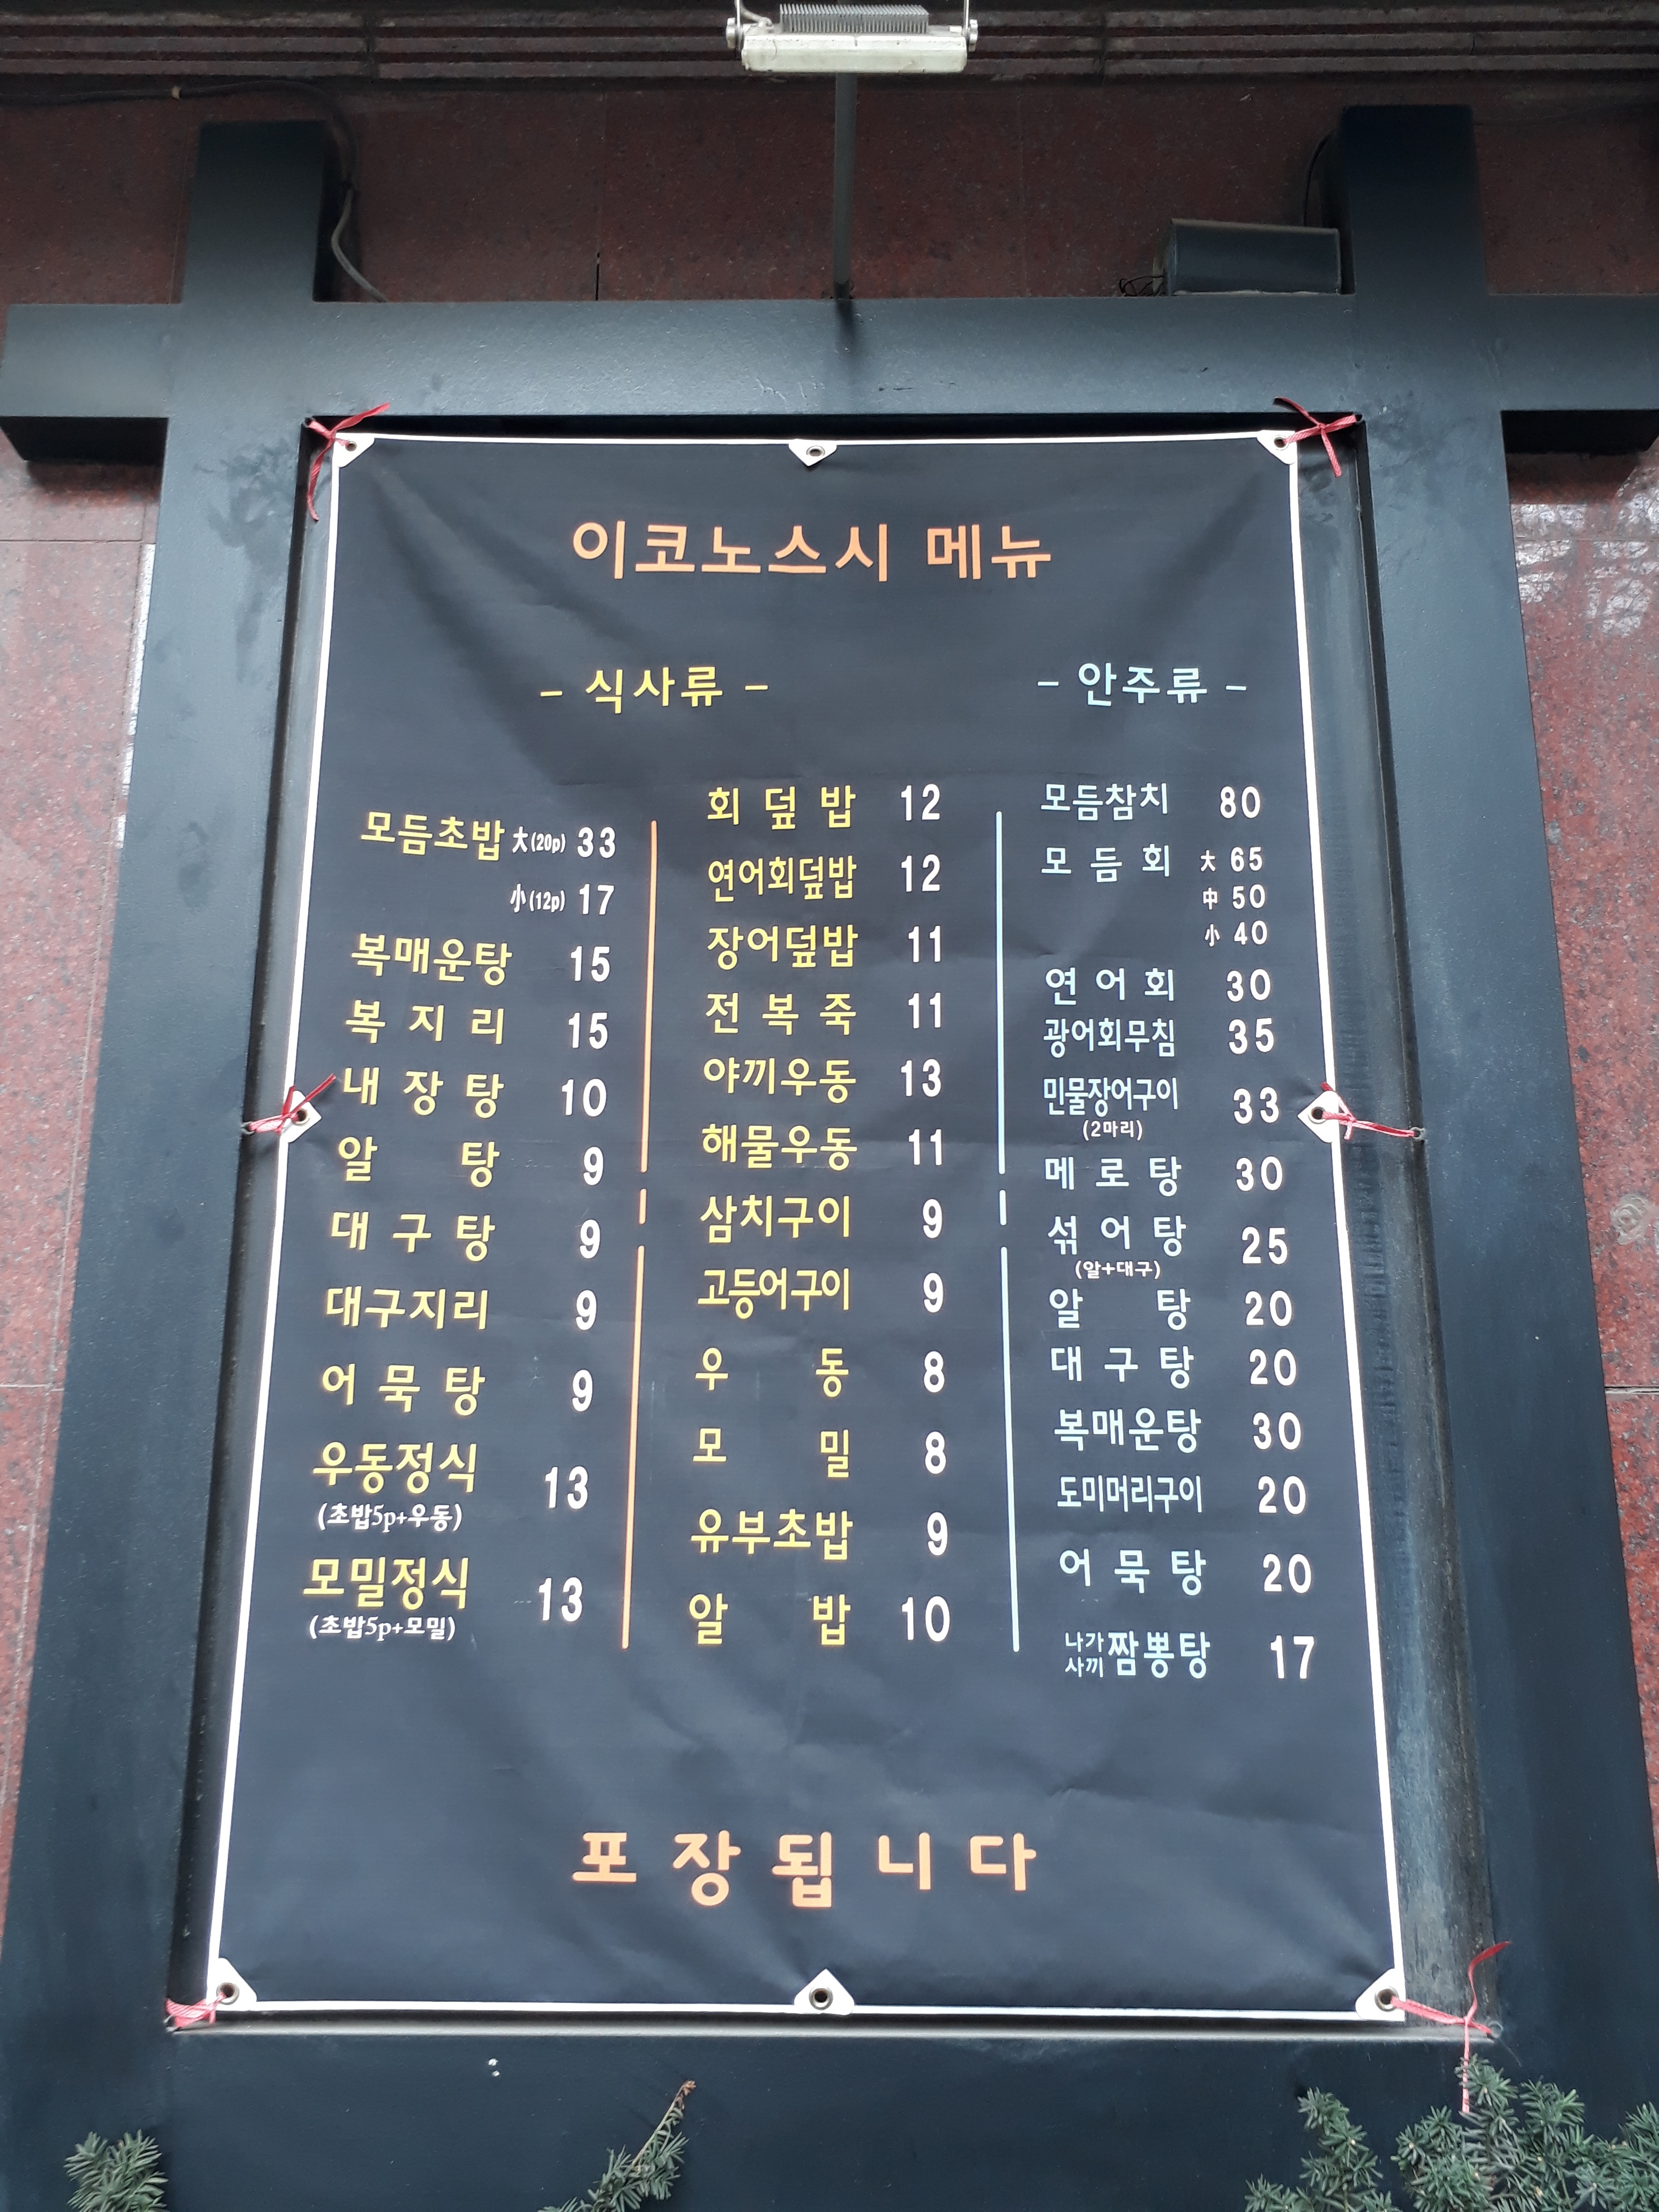 이코노스시 메뉴
- 식사류 -
모듬초밥 大(20p) 33
小(12p) 17
복매운탕 15
복 지 리 15
내 장 탕 10
알 탕 9
대 구 탕 9
대구지리 9
어 묵 탕 9
우동정식 13
(초밥5p+우동)
모밀정식 13
(초밥5p+모밀)
회 덮 밥 12
연어회덮밥 12
장어덮밥 11
전 복 죽 11
야끼우동 13
해물우동 11
삼치구이 9
고등어구이 9
우 동 8
모 밀 8
유부초밥 9
알 밥 10
- 안주류 -
모듬참치 80
모 듬 회 大 65
中 50
小 40
연 어 회 30
광어회무침 35
민물장어구이 33
(2마리)
메 로 탕 30
섞 어 탕 25
(알+대구)
알 탕 20
대 구 탕 20
복매운탕 30
도미머리구이 20
어 묵 탕 20
나가사끼 짬뽕탕 17
포 장 됩 니 다